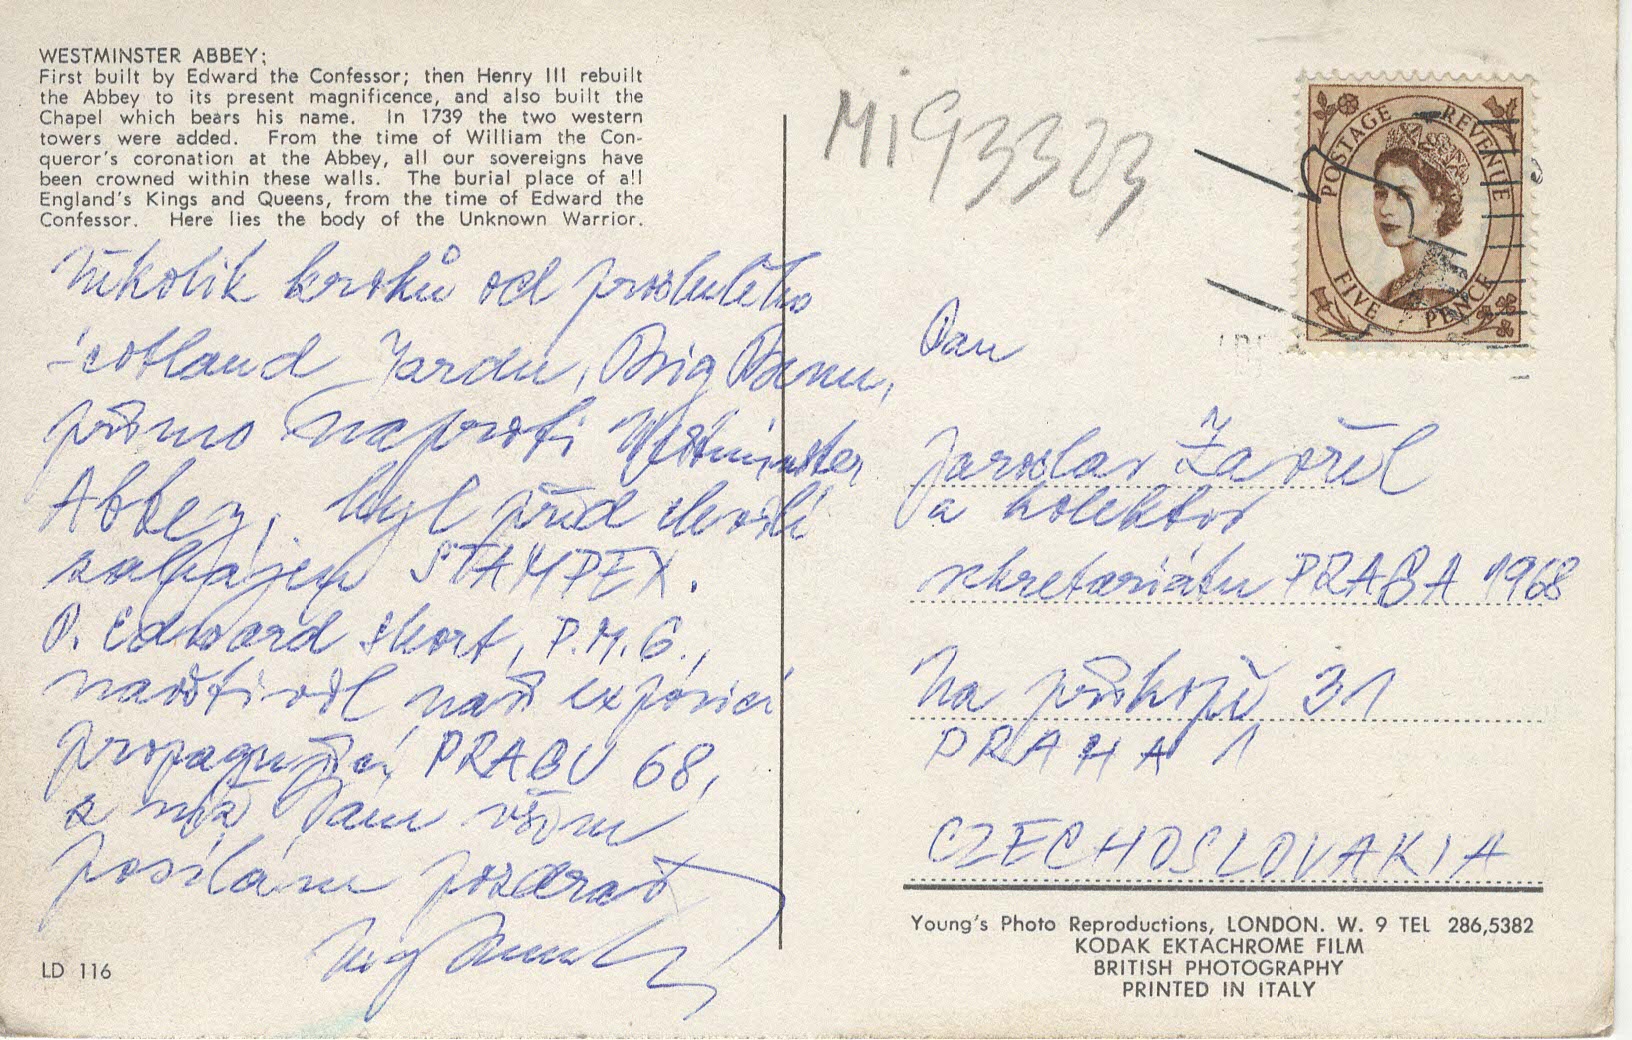 WESTMINSTER ABBEY:
First built by Edward the Confessor; then Henry III rebuilt
the Abbey to its present magnificence, and also built the
Chapel which bears his name. In 1739 the two western
towers were added. From the time of William the Con-
queror's coronation at the Abbey, all our sovereigns have
been crowned within these walls. The burial place of all
England's Kings and Queens, from the time of Edward the
Confessor. Here lies the body of the Unknown Warrior.
Několik kroků od proslulého
Scotland Yardu, Big Benu,
přímo naproti Westminster
Abbey, byl před chvílí
zahájen STAMPEX.
P. Edward Short, P.M.G.,
navštívil naši expozici
propagující PRAGU 68,
z níž Vám všem
posílám pozdrav
LD 116
Mi93323
POSTAGE REVENUE
FIVE PENCE
Pan
Jaroslav Zavřel
a kolektiv
sekretariátu PRAGA 1968
Na příkopě 31
PRAHA 1
CZECHOSLOVAKIA
Young's Photo Reproductions, LONDON. W. 9 TEL 286,5382
KODAK EKTACHROME FILM
BRITISH PHOTOGRAPHY
PRINTED IN ITALY